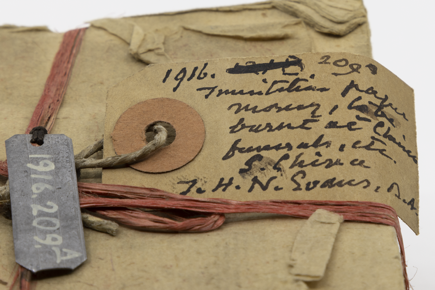 1916. 209
Imitation paper
money, to be
burnt at Chinese
funerals, etc.
China
T. H. N. Evans.
1916.209.A